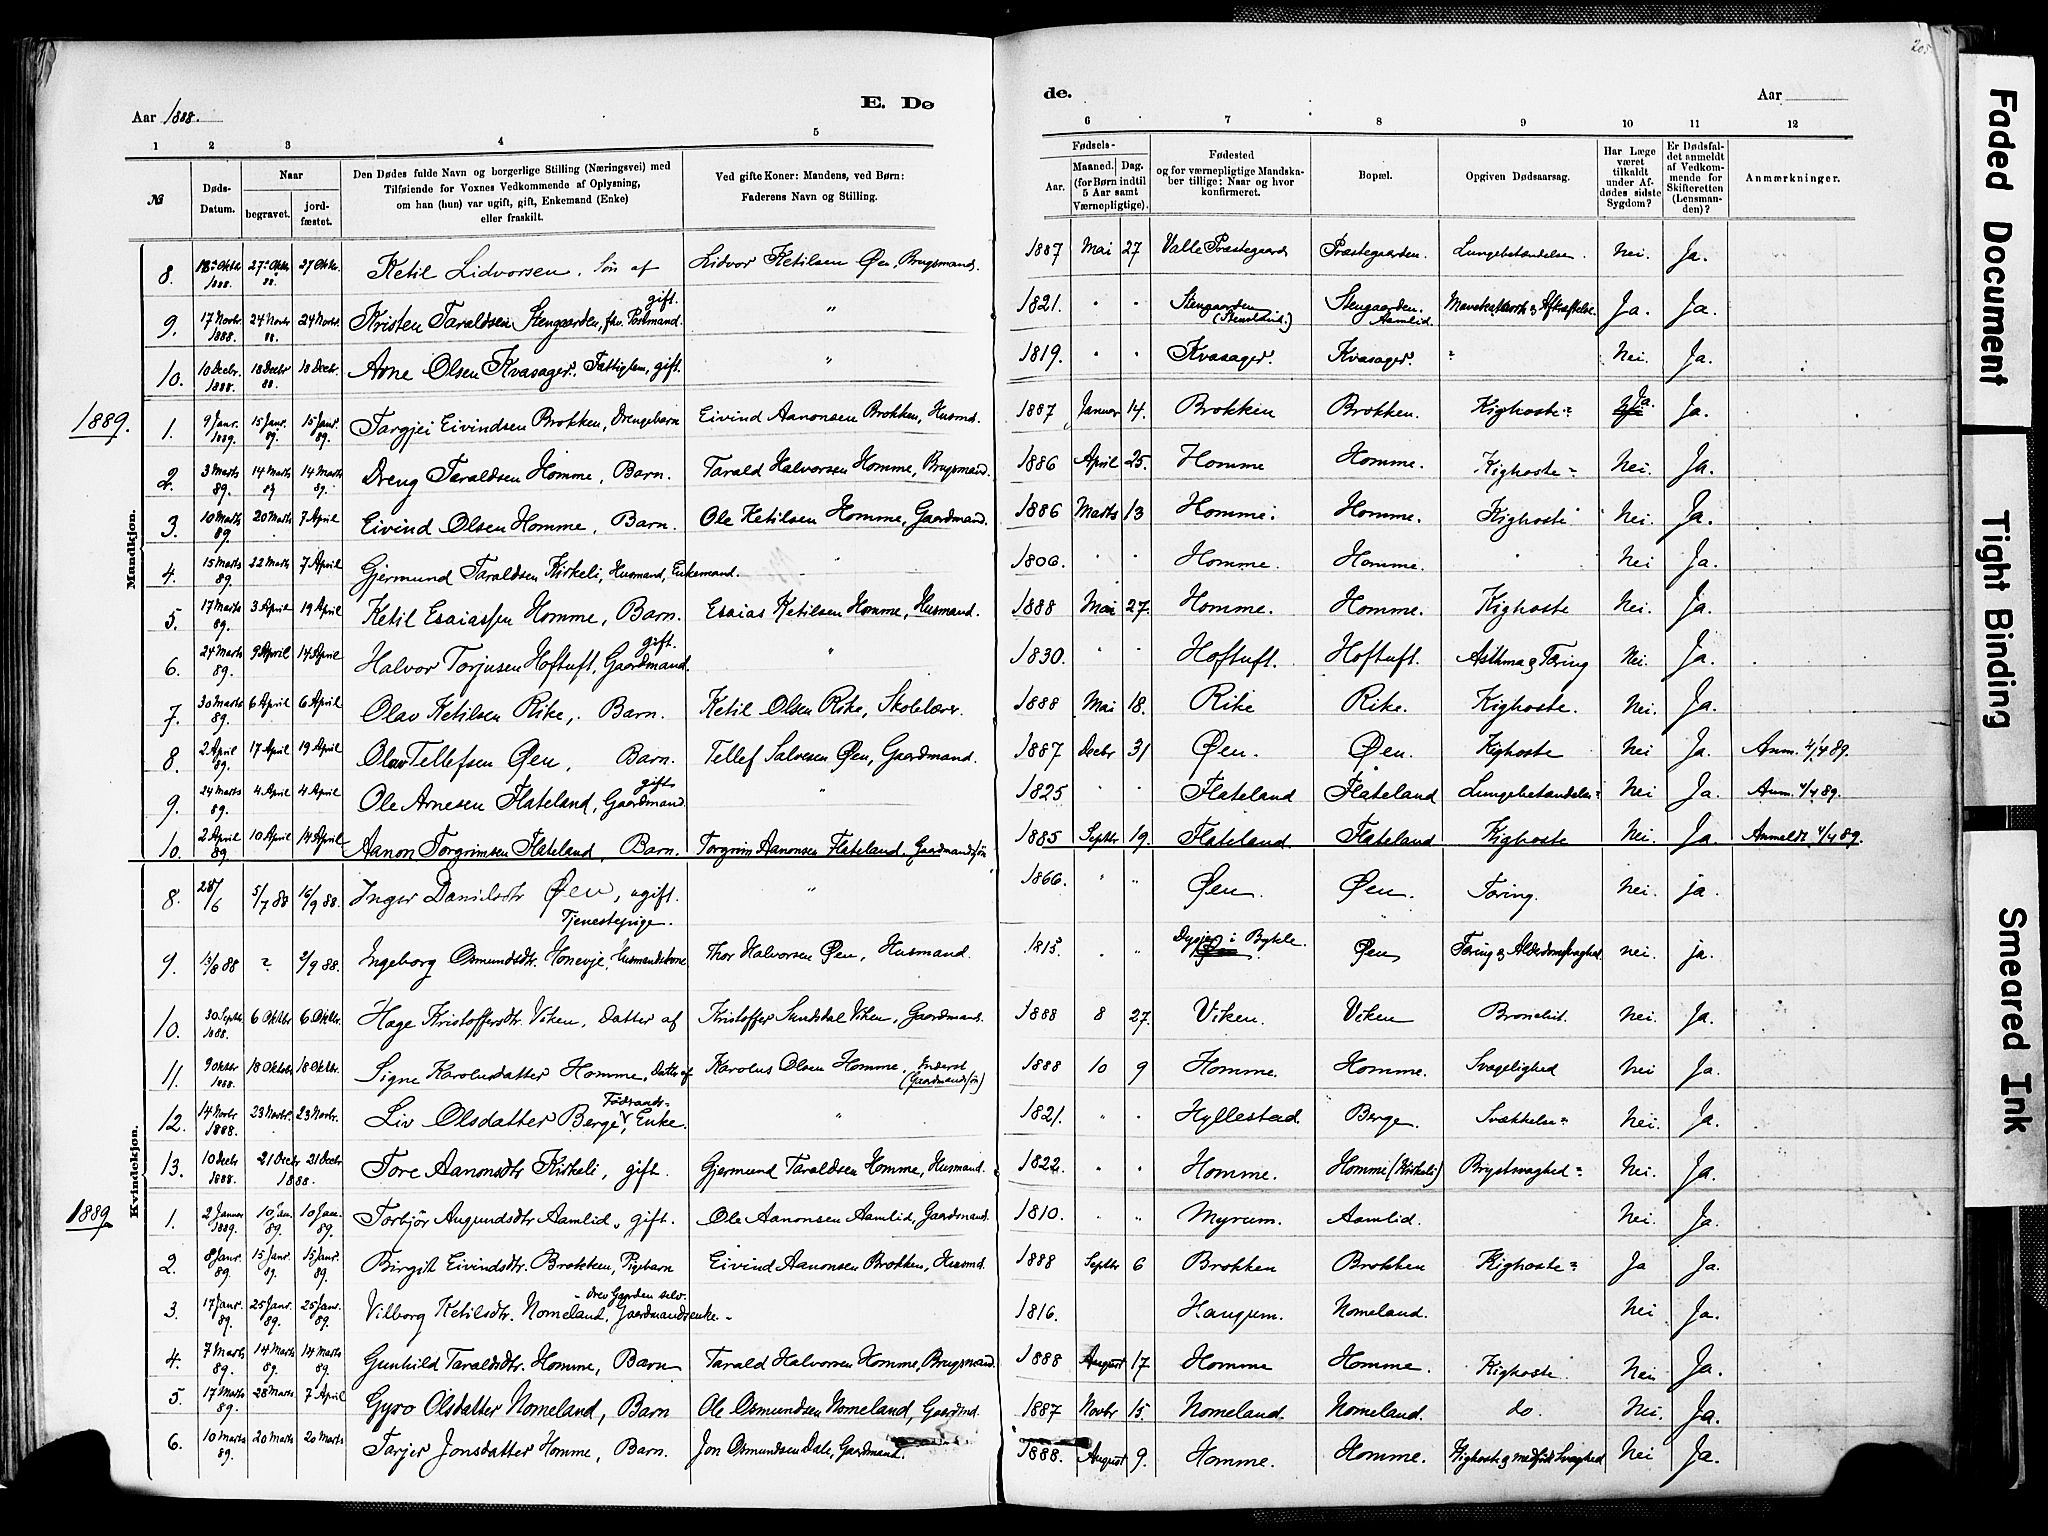 205
Aar 1888.
E. Dø
de.
Aar
1 2 3 4 5 6 7 8 9 10 11 12
№ Døds-Datum. Naar begravet. jord-fæstet. Den Dødes fulde Navn og borgerlige Stilling (Næringsvei) med Tilføiende for Voxnes Vedkommende af Oplysning, om han (hun) var ugift, gift, Enkemand (Enke) eller fraskilt. Ved gifte Koner: Mandens, ved Børn: Faderens Navn og Stilling. Fødsels- Aar. Maaned. Dag. (for Børn indtil 5 Aar samt Værnepligtige). Fødested og for værnepligtige Mandska-ber tillige: Naar og hvor konfirmeret. Bopæl. Opgiven Dødsaarsag. Har Læge været tilkaldt under Af-dødes sidste Sygdom? Er Dødsfal-det anmeldt af Vedkom-mende for Skifteretten (Lensman-den)? Anmærkninger.
Mandkjøn.
8. 1888. 27 Oktbr. 88. 27 Oktbr. Ketil Lidvorsen. Søn af Lidvor Ketilsen Øen, Brugsmand. 1887 Mai 27 Valle Præstegaard Præstegaarden. Lungebetændelse. Nei. Ja.
9. 17 Novbr. 1888. 24 Novbr 88. 24 Novbr. Kristen Taraldsen Stengaarden, fhv. Postmand. gift. " 1821. " " Stengaarden Stengaarden. Aamlid. Ja. Ja.
10. 10 Decbr. 1888. 18 Decbr 88. 18 Decbr. Arne Olsen Kvasager. Fattiglem, gift. " 1819. " " Kvasager. Kvasager. Nei. Ja.
1889.
1. 9 Janr. 1889. 15 Janr. 89. 15 Janr. 89. Targjei Eivindsen Brokken, Drengebarn Eivind Aanonsen Brokken, Husmd. 1887 Januar 14. Brokken Brokken. Kighoste Ja. Ja.
2. 3 Marts 89. 14 Marts 89 14 Marts 89. Dreng Taraldsen Homme, Barn. Tarald Halvorsen Homme, Brugsmand. 1886 April 25. Homme Homme. Kighoste Nei. Ja.
3. 10 Marts 89. 20 Marts 7 April Eivind Olsen Homme, Barn. Ole Ketilsen Homme, Gaardmand. 1886 Marts 13 Homme. Homme. Kighoste Nei. Ja.
4. 15 Marts 89. 22 Marts 7 April Gjermund Taraldsen Kirkeli, Husmand, Enkemand. " 1806. " " Homme. Homme. " Nei Ja.
5. 17 Marts 89. 3 April 19 April Ketil Esaiassen Homme, Barn. Esaias Ketilsen Homme, Husmand. 1888 Mai 27. Homme. Homme. Kighoste Nei. Ja.
6. 24 Marts 89. 9 April 14 April Halvor Torjusen Hoftuft, Gaardmand. gift. " 1830. " " Hoftuft. Hoftuft. Asthma & Tæring Nei. Ja.
7. 30 Marts 89. 6 April 6 April Olav Ketilsen Rike, Barn. Ketil Olsen Rike, Skolelærer. 1888 Mai 18. Rike Rike. Kighoste. Nei. Ja.
8. 2 April 89. 17 April 19 April Olav Tellefsen Øen, Barn. Tellef Salvesen Øen, Gaardmand. 1887 Decbr 31 Øen. Øen. Kighoste Nei Ja. Anm. 4/4 89.
9. 24 Marts 89. 4 April 4 April Ole Arnesen Flateland, Gaardmand gift " 1825 " " Flateland Flateland Lungebetændelse Nei Ja. Anm. 4/4 89.
10. 2 April 89 10 April 14 April Aanon Torgrimsen Flateland, Barn. Torgrim Aanonsen Flateland, Gaardmandssøn 1885 Septbr 19. Flateland Flateland Kighoste Nei. Ja. Anmeldt 4/4 89.
Kvindekjøn.
8. 28/6 5/7 88 16/9 88. Inger Danielsdtr Øen, ugift. Tjenestepige. " 1866. " " Øen. Øen. Tæring. Nei. ja.
9. 13/8 88 ? 2/9 88. Ingeborg Osmundsdtr. Honevje, Husmandskone Thor Halvorsen Øen, Husmand. 1815 " " i Bykle. Øen Tæring & Alderdomssvaghed nei. ja.
10. 30 Septbr 1888. 6 Oktbr 6 Oktbr. Hæge Kristoffersdtr. Viken, Datter af Kristoffer Sundsdal Viken, Gaardmand. 1888 8 27. Viken. Viken Bronchit. Nei. Ja.
11. 9 Oktbr 1888. 18 Oktbr. 18 Oktbr. Signe Karolusdatter Homme, Datter af Karolus Olsen Homme, Inderst (Gaardmandssøn) 1888 10 9 Homme. Homme. Svagelighed Nei Ja.
12. 14 Novbr 1888. 23 Novbr. 23 Novbr. Liv Olsdatter Berge, Føderaads- Enke. " 1821. " " Hyllestad Berge. Svækkelse Nei. Ja.
13. 10 Decbr 1888. 21 Decbr 21 Decbr 1888. Tore Aanonsdtr Kirkeli, gift. Gjermund Taraldsen Homme, Husmand. 1822. " " Homme. Homme (Kirkeli) Brystsvaghed Nei. Ja.
1889
1. 2 Januar 1889. 10 Jan. 89. 10 Jan. 89. Torbjør Augundsdtr Aamlid, gift. Ole Aanonsen Aamlid, Gaardmand. 1810. " " Myrum. Aamlid. Nei. Ja.
2. 8 Janr. 89. 15 Janr. 89. 15 Janr. 89. Birgit Eivindsdtr. Brokken, Pigebarn Eivind Aanonsen Brokken, Husmd. 1888 Septbr 6 Brokken Brokken Kighoste Ja Ja.
3. 17 Janr. 89. 25 Janr. 89. 25 Janr. 89. Vilborg Ketilsdtr. Nomeland, Gaardmandsenke. - drev Gaarden selv. - 1816. Haugum. Nomeland. Nei Ja.
4. 7 Marts 89. 14 Marts 89. 14 Marts 89. Gunhild Taraldsdtr. Homme, Barn Tarald Halvorsen Homme, Brugsmand. 1888 August 17 Homme Homme. Kighoste. Nei Ja.
5. 17 Marts 89. 28 Marts 7 April Gyro Olsdatter Nomeland, Barn Ole Osmundsen Nomeland, Gaardmd. 1887 Novbr 15. Nomeland. Nomeland. do. Nei. Ja.
6. 10 Marts 89. 20 Marts 20 Marts Tarjer Jonsdatter Homme, Barn. Jon Osmundsen Dale, Gaardmand. 1888. August 9. Homme. Homme. Kighoste & medfødt Svaghed Nei Ja.
Faded Document
Tight Binding
Smeared Ink